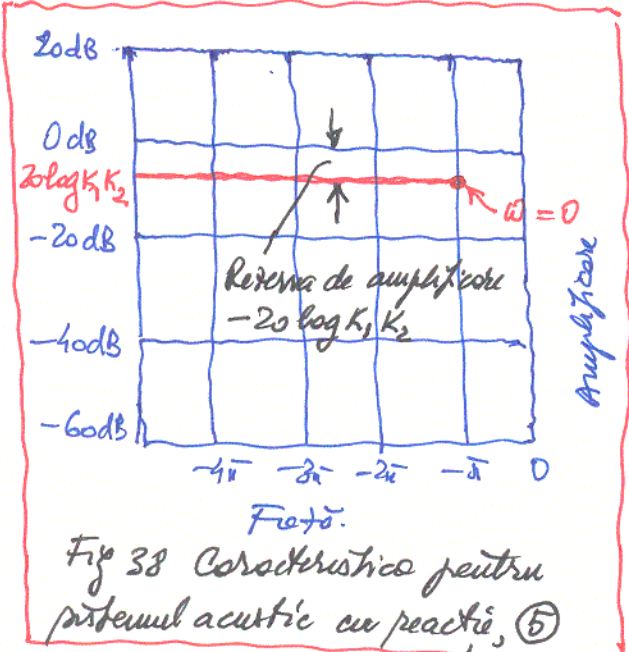 20dB
0dB
20logK₁K₂
ω = 0
-20dB
Rezerva de amplificare
-20logK₁K₂
-40dB
Amplificare
-60dB
-4π -3π -2π -π 0
Fig 38 Caracteristica pentru
sistemul acustic cu reacție, ⑤